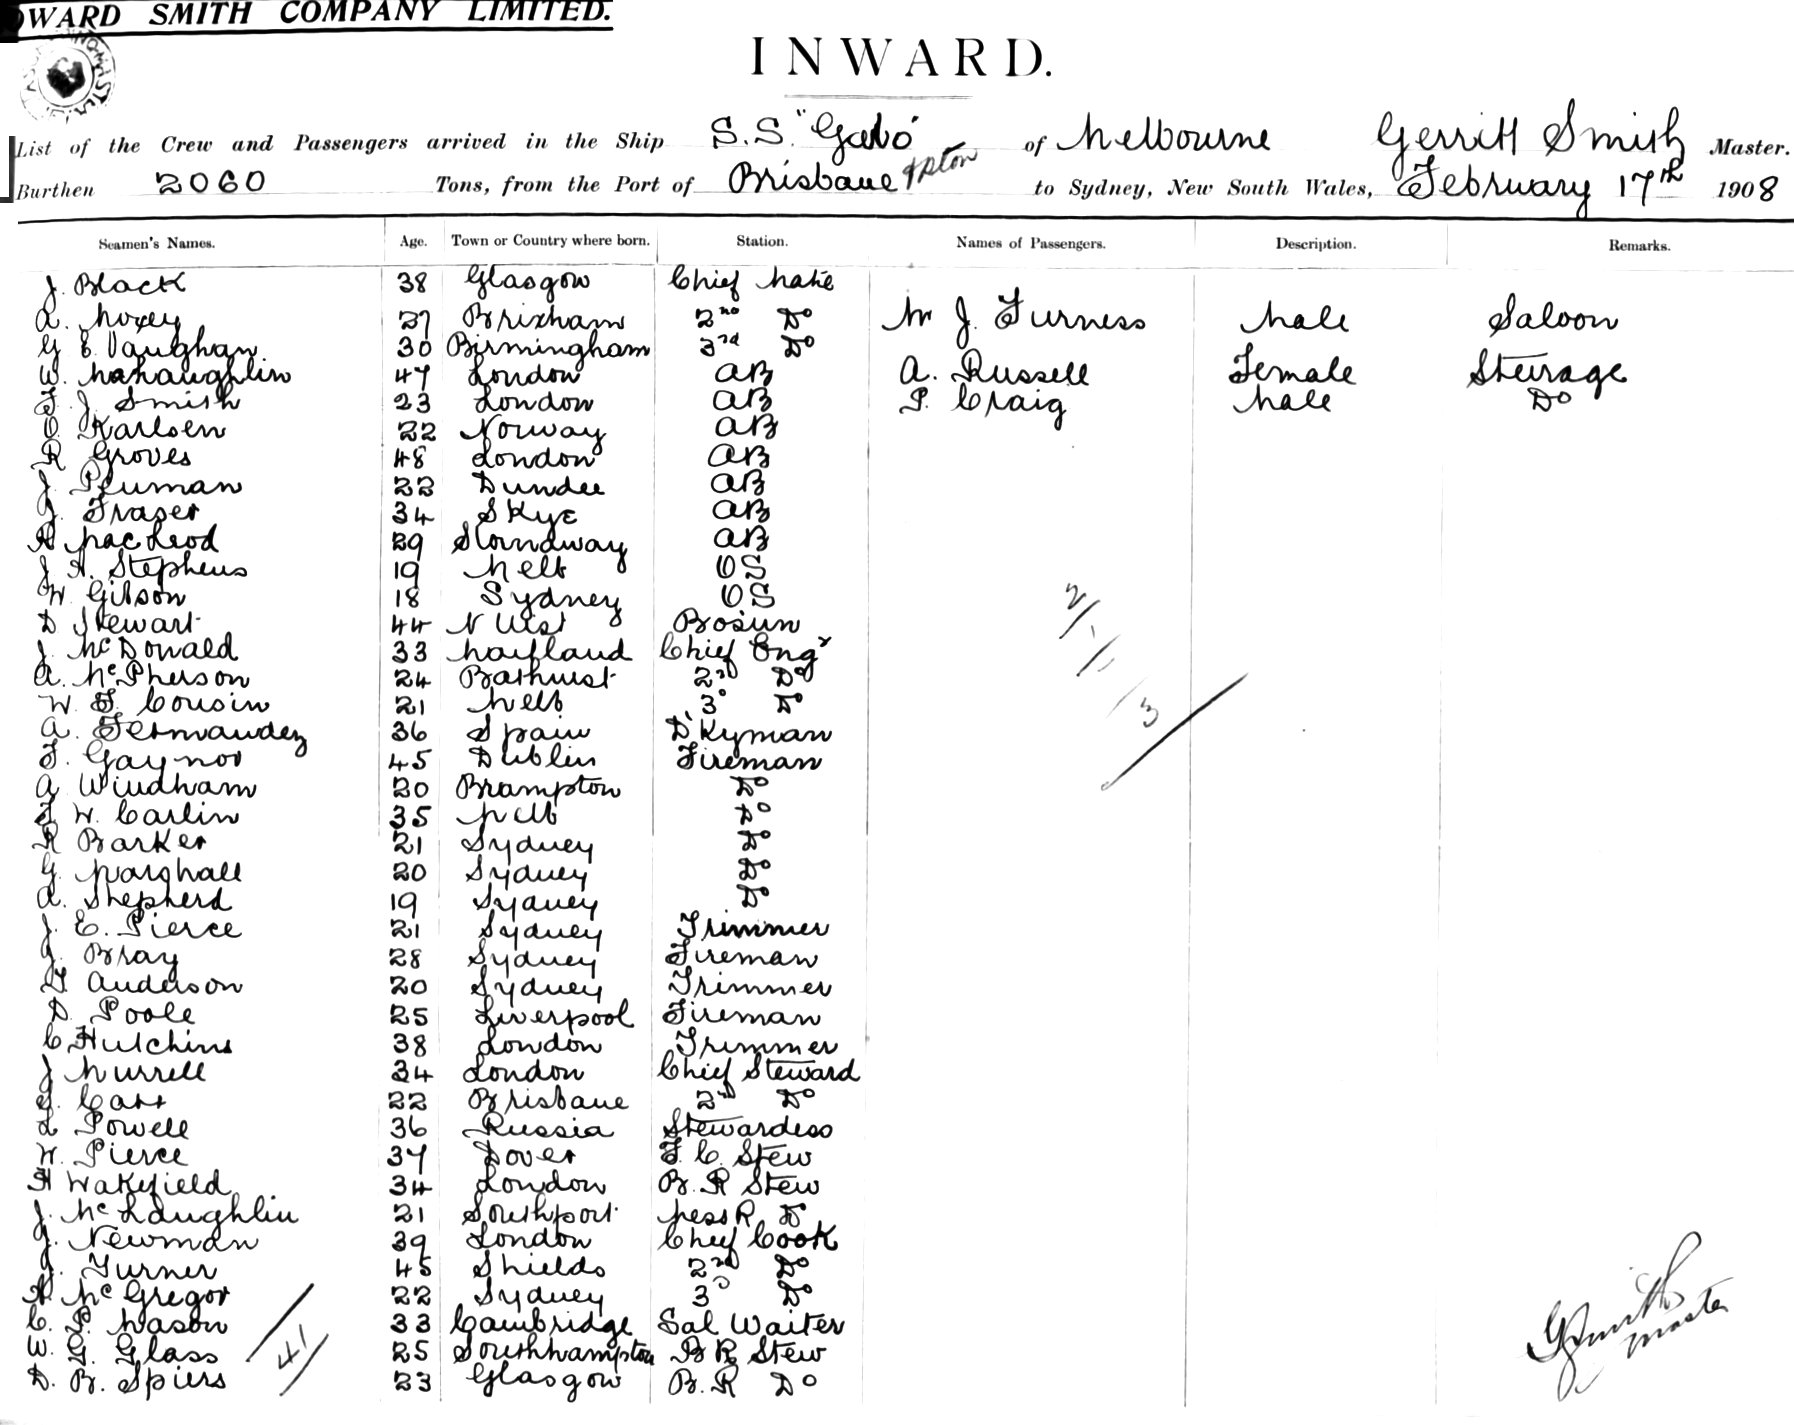 WARD SMITH COMPANY LIMITED.
INWARD.
List of the Crew and Passengers arrived in the Ship S.S. "Gabo" of Melbourne Gerritt Smith Master.
Burthen 2060 Tons, from the Port of Brisbane to Sydney, New South Wales, February 17th 1908
Seamen's Names. Age. Town or Country where born. Station. Names of Passengers. Description. Remarks.
J. Black 38 Glasgow Chief Mate
A. Moxey 27 Brixham 2nd Do Mr J. Furness Male Saloon
G E. Vaughan. 30 Birmingham 3rd Do
W. 47 London AB A. Russell Female Steerage
F. J. Smith 23 London AB P. Craig Male Do
O. Karlsen 22 Norway AB
R Groves 48 London AB
J. 22 Dundee AB
J. Fraser 34 Skye AB
MacLeod 29 Stornoway AB
J A. Stephens 19 Melb OS
W. Gibson 18 Sydney OS
D Stewart 44 N Uist Bosun
J. McDonald 33 Maitland Chief Engr
A. McPherson 24 Bathurst 2nd Do
W. F. Cousin 21 Melb 3o Do
A. Fernandez 36 Spain D'Kyman
F. Gaynor 45 Dublin Fireman
A Windham 20 Brampton Do
W. Carlin 35 Melb Do
R Barker 21 Sydney Do
G. Marshall 20 Sydney Do
A. Shepherd 19 Sydney Do
J. E. Pierce 21 Sydney Trimmer
J. Bray 28 Sydney Fireman
Anderson 20 Sydney Trimmer
D Poole 25 Liverpool Fireman
C Hutchins 38 London Trimmer
J Murrell 34 London Chief Steward
G. Carr 22 Brisbane 2nd Do
L Powell 36 Russia Stewardess
W. Pierce 37 Dover F. C. Stew
H Wakefield 34 London B. R Stew
J. McLaughlin 21 Southport Mess R Do
J. Newman 39 London Chief Cook
J. Turner 45 Shields 2nd Do
A. McGregor 22 Sydney 3o Do
C. P. Mason 33 Cambridge Sal Waiter
W. G. Glass 25 Southhampton B R Stew
D. B. Spiers 23 Glasgow B. R Do
2/
1/
3
41
GSmith
Master